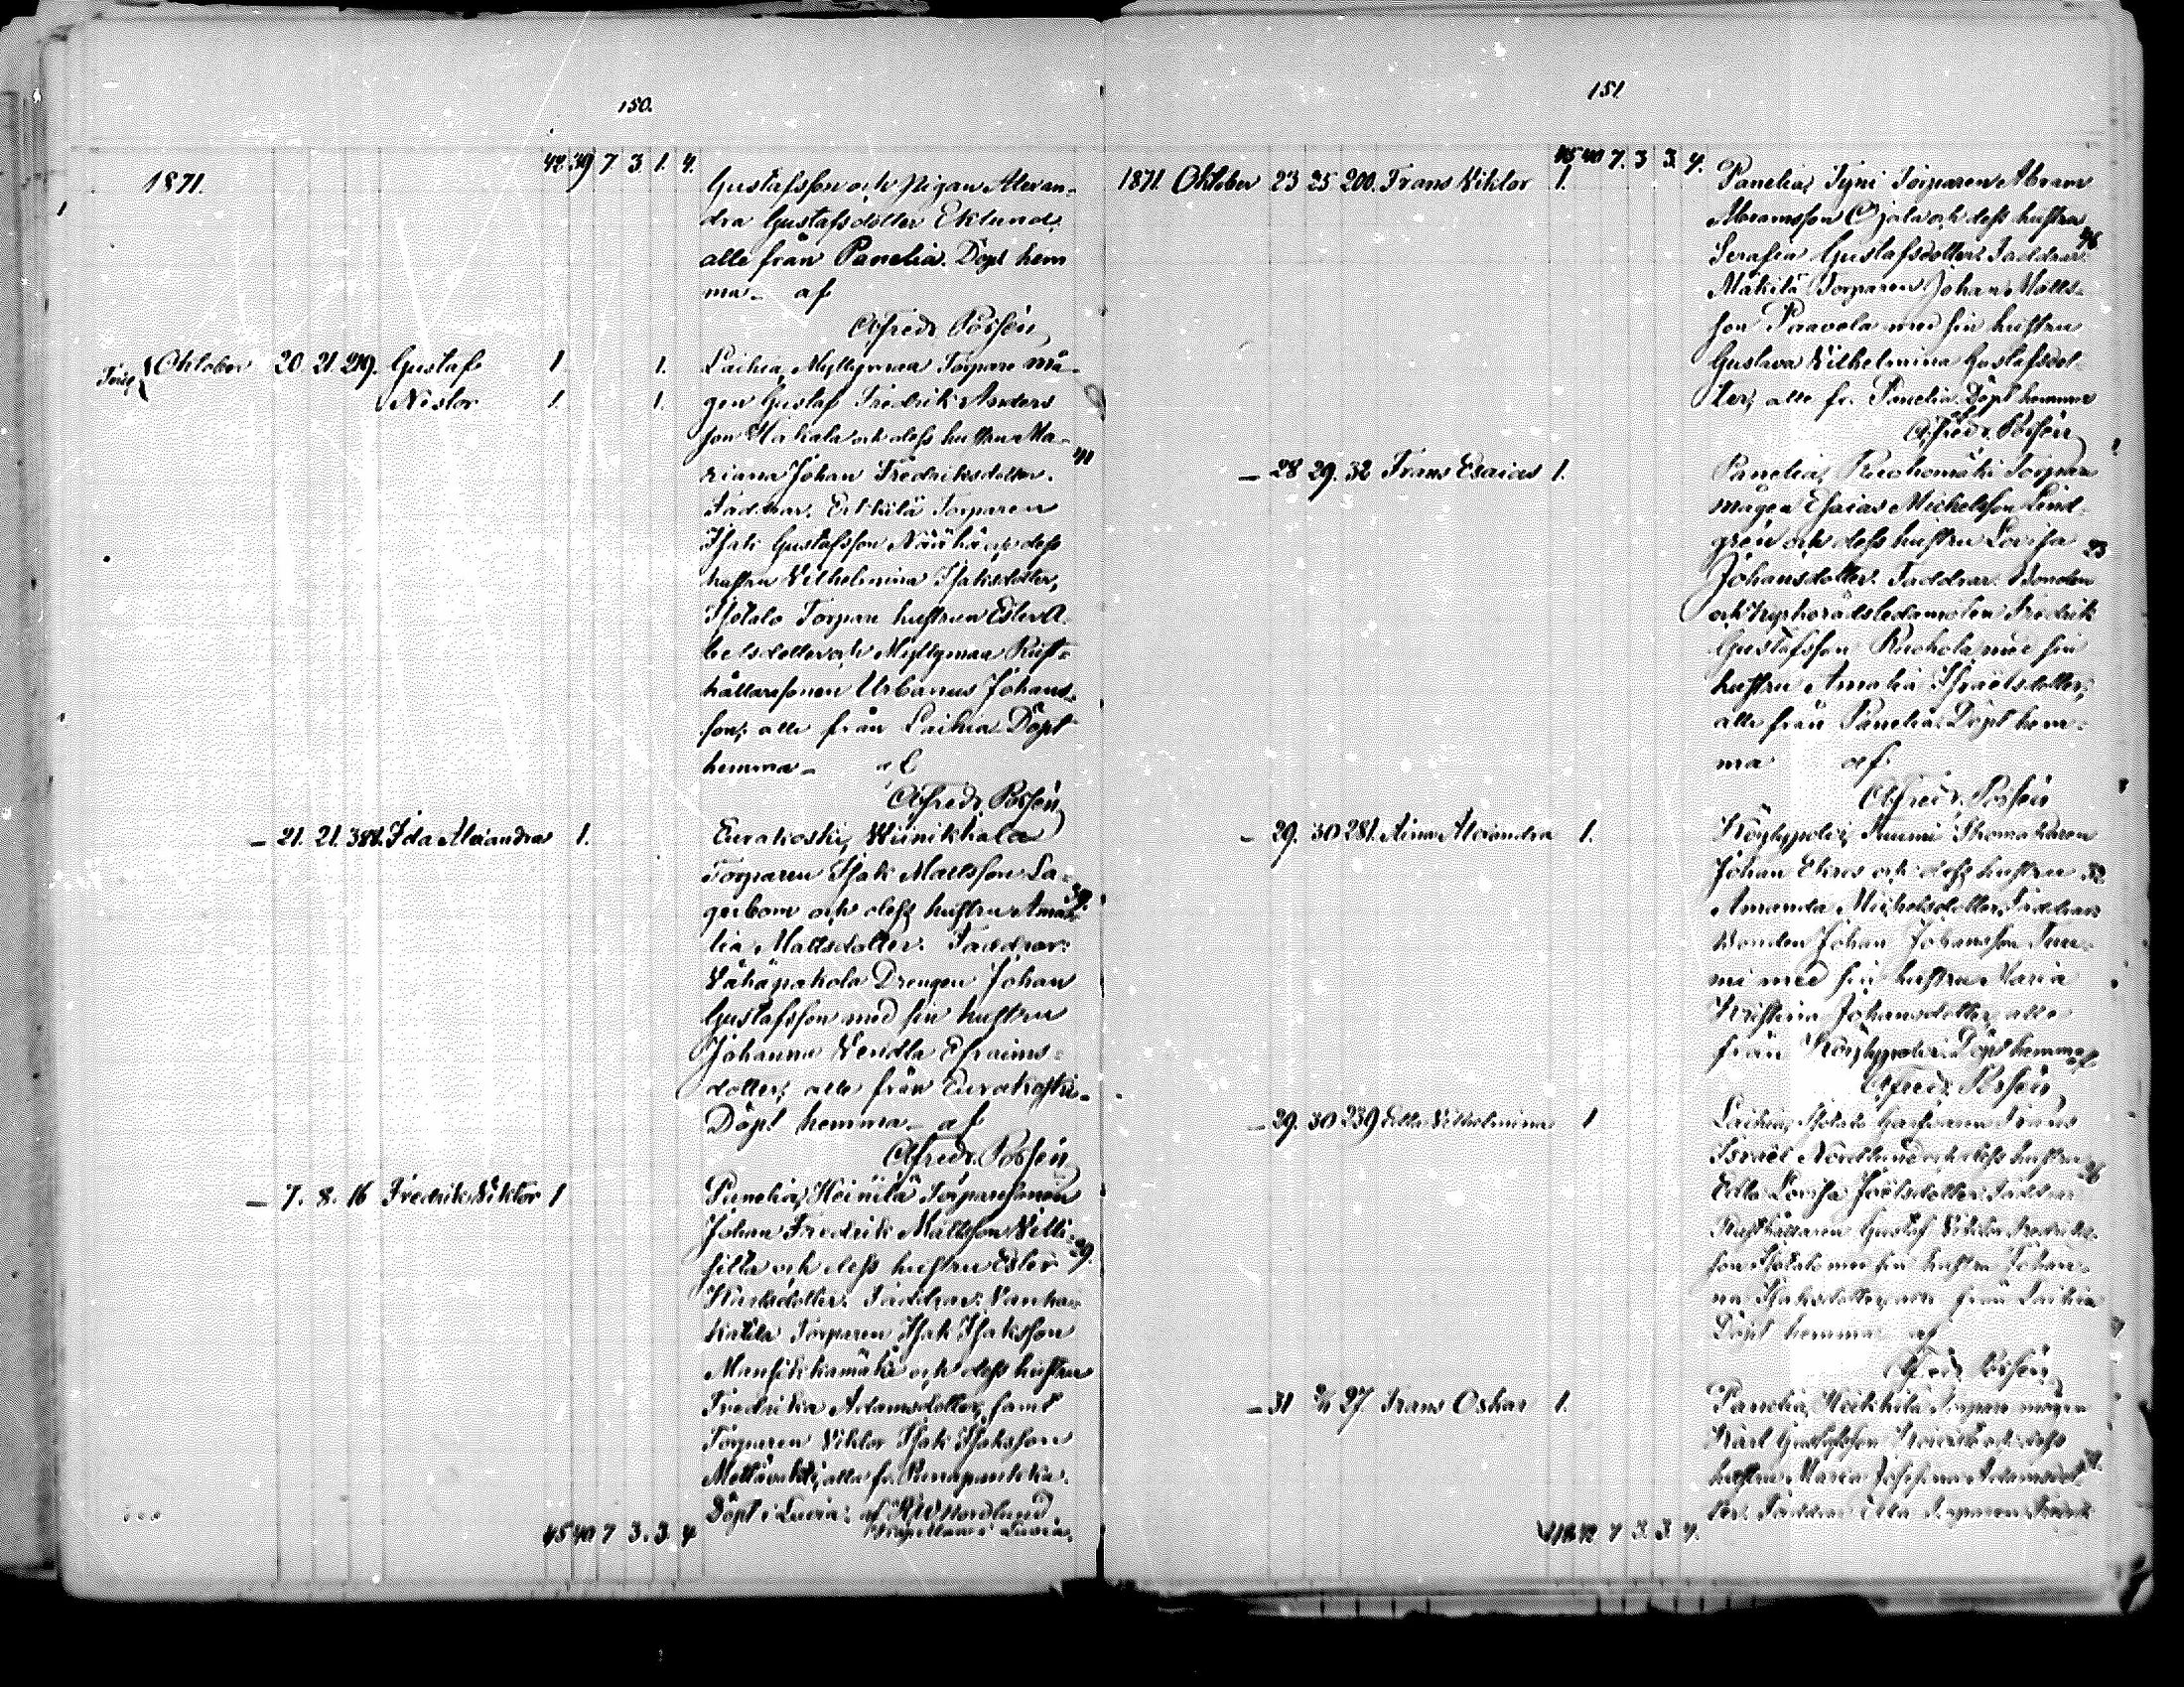 150.
42 39 7 3 1. 4.
1871.
Gustafsson och Pigan Alexan-
dra Gustafsdotter Eklund,
alle från Panelia. Döpt hem
ma - af
Alfred Posén
Oktober 20 21. 219. Gustaf 1. 1. Laihia, Myllymaa Torpare må-
Nestor 1. 1. gen Gustaf Fredrik Anders
son Hakala och dess hustru Ma-
riana Johan Fredriksdotter. 41
Faddrar: Erkkilä Torparen
Isak Gustafsson dess
hustru Vilhelmina Isaksdotter,
Isotalo Torpare hustrun Ester A-
belsdotter och Myllymaa Rust-
hållaresonen Urbanus Johans-
son; alle från Laihia Döpt
hemma - af
Alfred Posén
- 21. 21. 388. Ida Alexandra 1. Eurakoski, Viinikkala
Torparen Isak Mattsson La-
gerbom och dess hustru Ama- 39.
lia Mattsdotter. Faddrar:
Vähäpakola Drengen Johan
Gustafsson med sin hustru
Johanna Vendla Efraims-
dotter; alle från Eurakoski.
Döpt hemma - af
Alfred Posén
- 7. 8. 16 Fredrik Viktor 1 Panelia, Heinilä Torparesonen
Johan Fredrik Mattsson Villi-
silta och dess hustru Ester 29.
Faddrar: Vanha
Torparen Isak Isaksson
Mansikkamäki och dess hustru
Fredrika Adamsdotter, samt
Torparen Viktor Isak Isaksson
alla fr.
Döpt i Luvia; af Nordlund.
Luvia.
45 40 7 3. 3. 4
151
45 40 7. 3 3. 4.
1871. Oktober 23 25 200. Frans Viktor 1. Panelia, Tyni Torparen Abram
Abramsson Ojala och dess hustru
Serafia Gustafsdotter. Faddrar: 46
Mäkilä Torparen Johan Matts-
son Paavola med sin hustru
Gustava Vilhelmina Gustafsdot-
ter, alle fr. Panelia. Döpt hemma
af Alfred Posén
- 28 29. 32 Frans Esaias 1. Panelia, Ruohomäki Torpare
mågen Esaias Michelsson Lind-
grén och dess hustru Lovisa 23
Johansdotter. Faddrar: Bonden
och Kyrkorådsledamoten Fredrik
Gustafsson Ruohola med sin
hustru Amalia Israelsdotter;
alle från Panelia. Döpt hem-
ma af
Alfred Posén
- 29. 30 281. Aina Alexandra 1. Köyhypoli, Tuumi Skomakaren
Johan Ekros och dess hustru 32
Amanda Michelsdotter. Faddrar
Bonden Johan Johansson Tuu-
mi med sin hustru Maria
Kristina Johansdotter, alle
från Köyhypoli. Döpt hemma af
Alfred Posén
- 29. 30 239 Edla Vilhelmina 1 Laihia, Isotalo Frans
Israel Nordlund och dess hustru
Edla Lovisa Joelsdotter. Faddrar 26
Rusthållaren Gustaf Viktor Fredriks-
son Isotalo med sin hustru Johan-
na Isaksdotter, alle från Laihia
Döpt hemma af
Alfred Posén
- 31 27 Frans Oskar 1. Panelia, Heikkilä Torpare mågen
Karl Gustafsson och dess
hustru Maria Josefina Adamsdot-
ter. Faddrar Torparen
7 3. 3. 4.